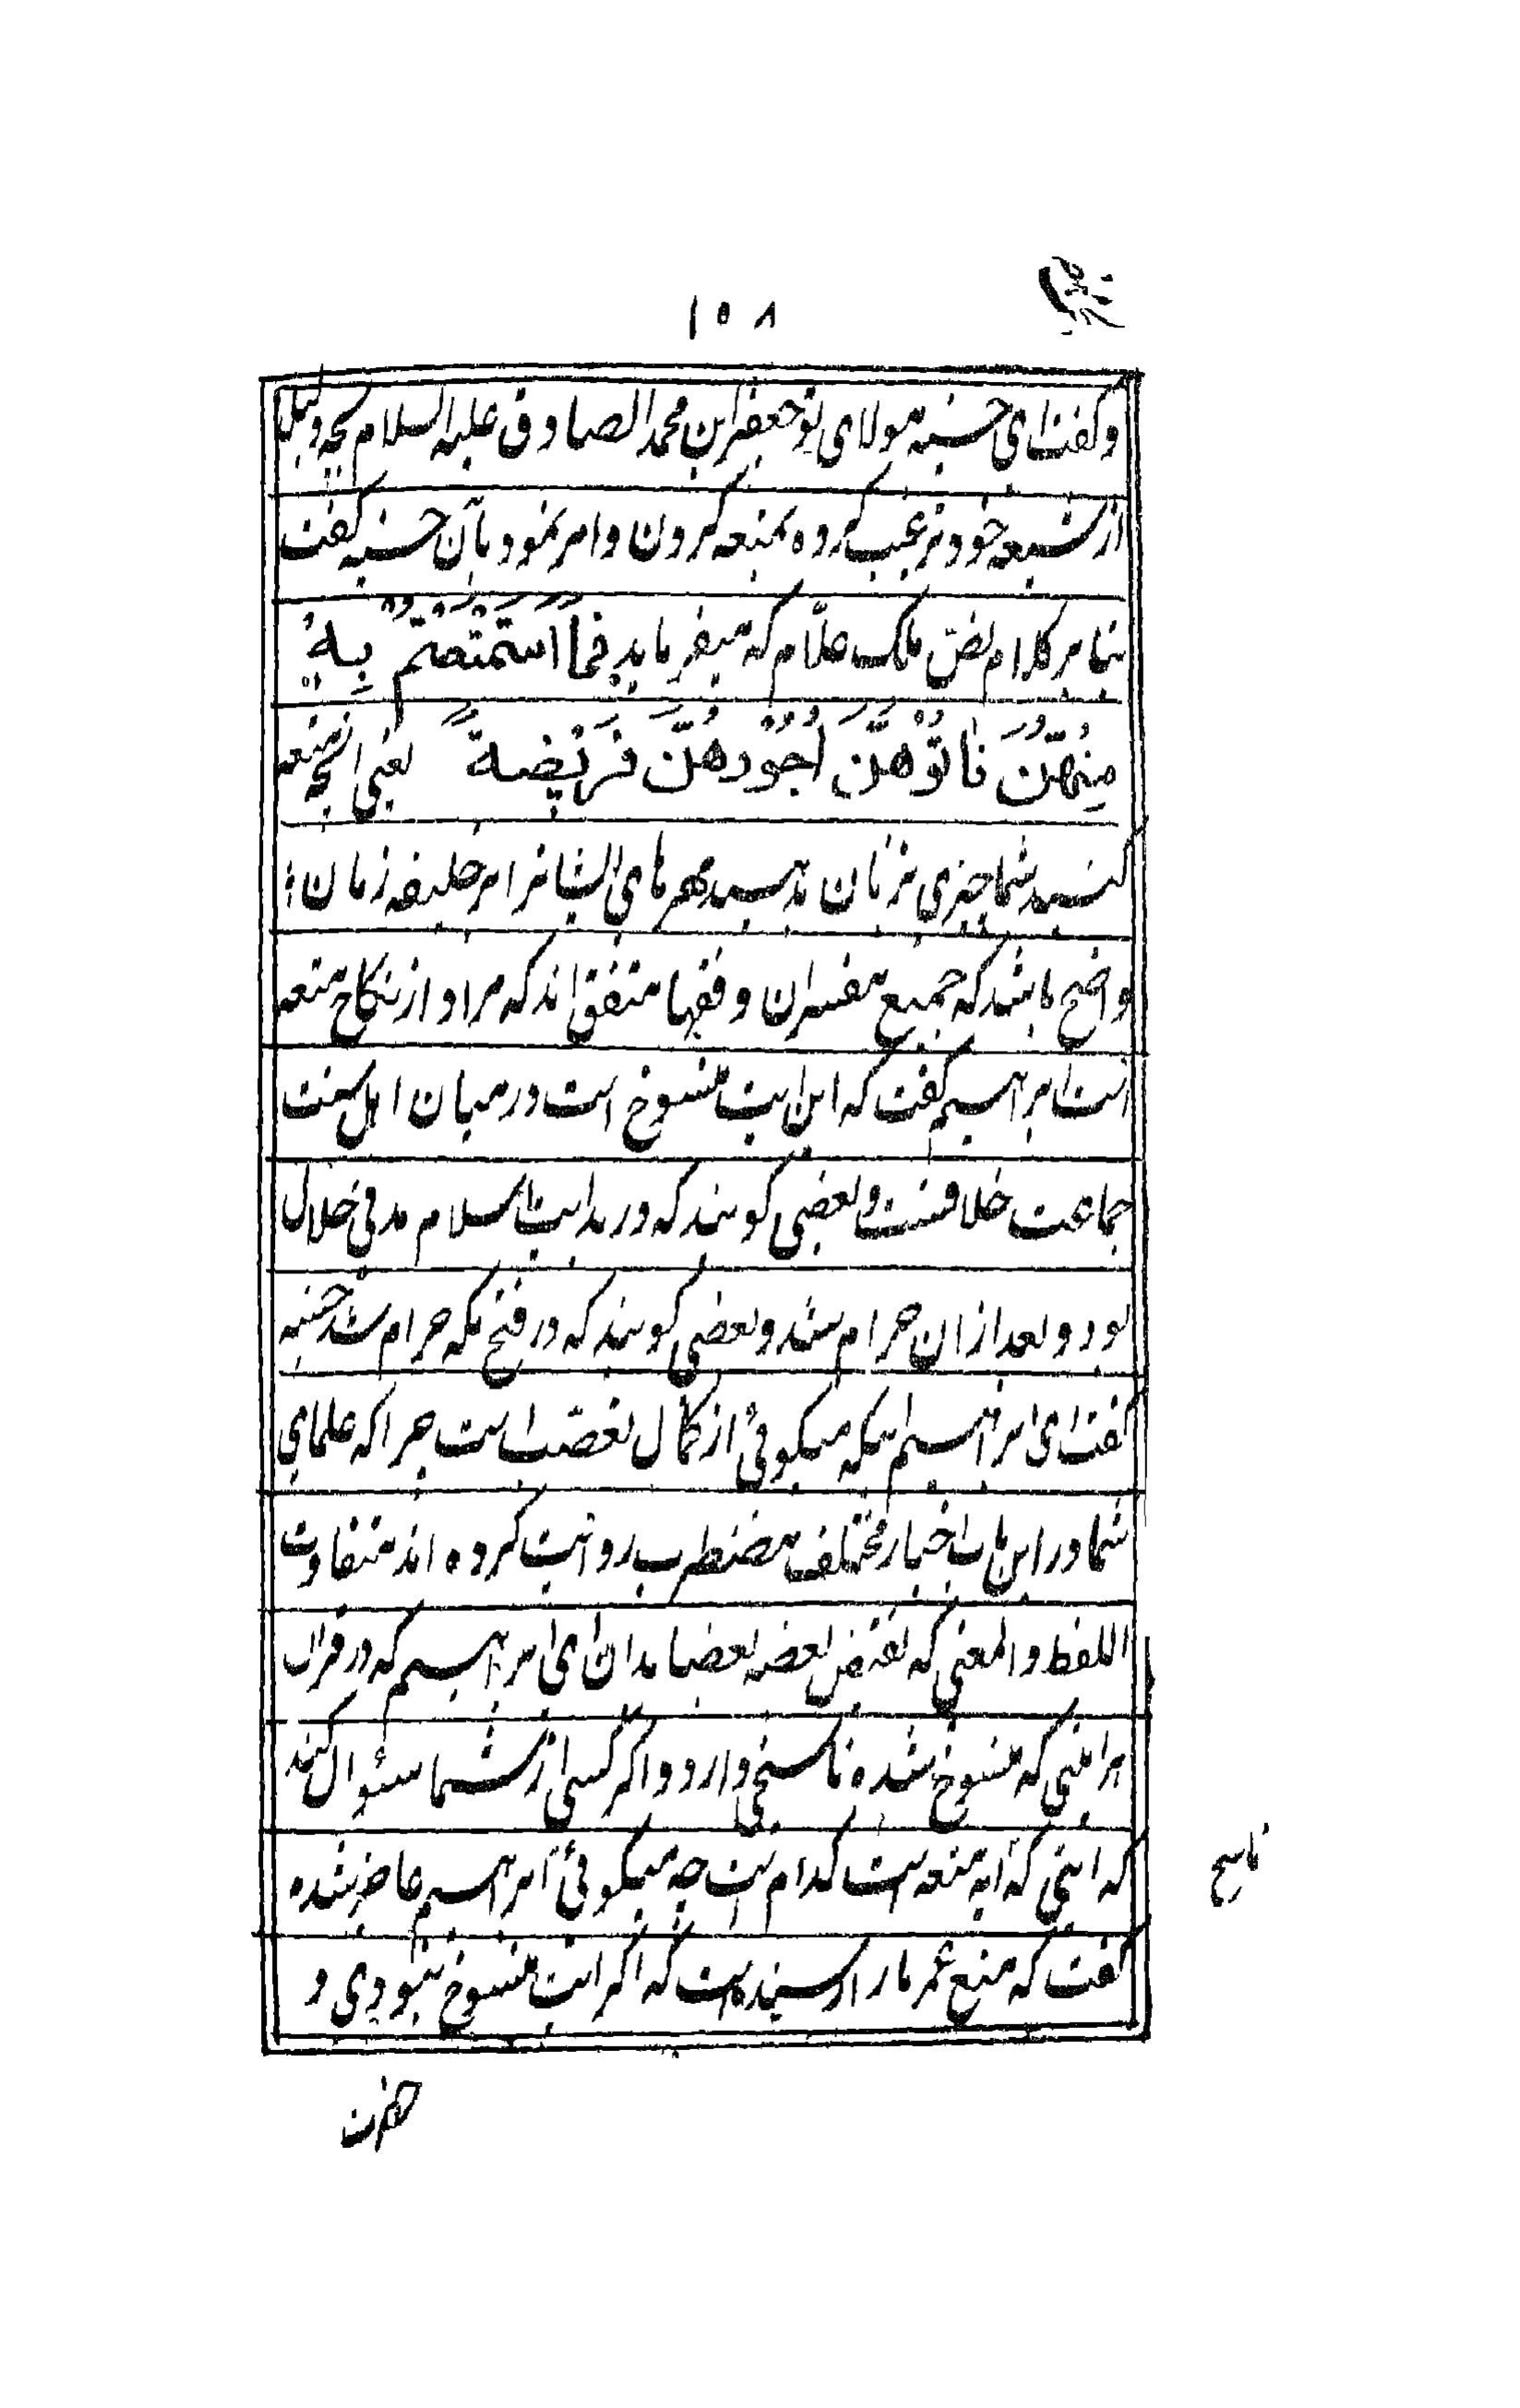 ۱۵۸
و گفت ای حسنیه مولای تو جعفر ابن محمد الصادق علیه السلام بچه دلیل
از شیعه خود ترغیب کرده بمتعه کردن و امر نمود بآن حسنیه گفت
بنابر کلام نصّ ملک علّام که میفرماید فَمَا اسْتَمْتَعْتُمْ بِهِ
مِنْهُنَّ فَاتُوْهُنَّ اُجُوْرَهُنَّ فَرِیْضَةً یعنی آنچه متعه
کنید شما چیزی بزنان بدهید مهرهای ایشانرا بر خلیفه زمان
واضح باشد که جمیع مفسران و فقها متفق اند که مراد از نکاح متعه
است ابراهیم گفت که این ایت منسوخ است در میان اهل سنت
جماعت خلافست و بعضی گویند که در بدایت اسلام مدتی حلال
بود و بعد از ان حرام شد و بعضی گویند که در فتح مکه حرام شد حسنیه
گفت ای ابراهیم اینکه میگوئی از کمال تعصّب است چرا که علمای
شما در این باب اخبار مختلف مضطرب روایت کرده اند متفاوت
اللفظ و المعنی که نقیض بعضه بعضا بدان ای ابراهیم که در قران
هر ایتی که منسوخ شده ناسخی دارد و اگر کسی از شما سئوال کند
که ایتی که آیه متعه است کدام است چه میگوئی ابراهیم حاضر شده
گفت که منع عمر ما را رسیده است که اگر ایت منسوخ نبودی و
ناسخ
حضرت